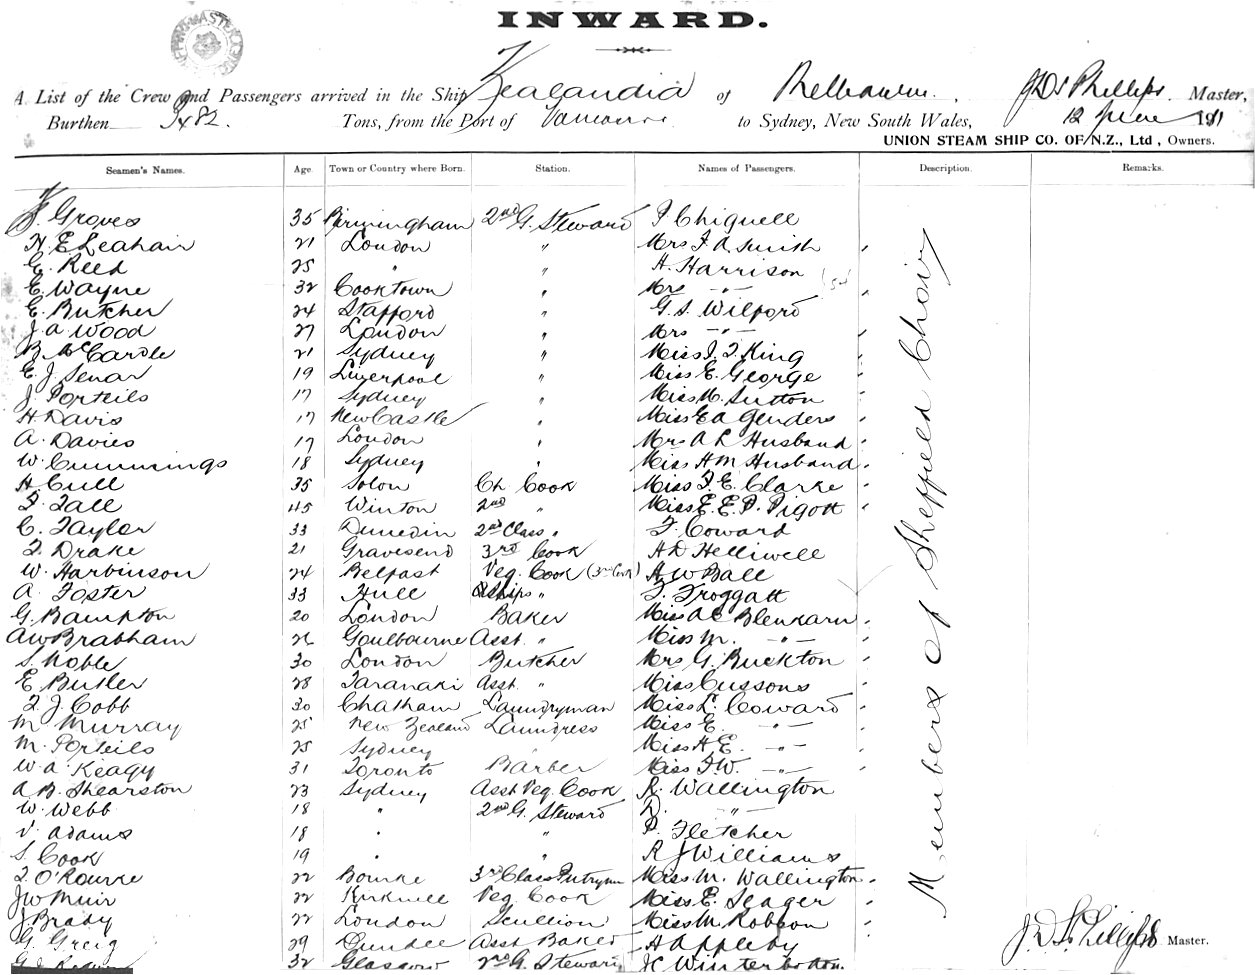 INWARD.
A List of the Crew and Passengers arrived in the Ship Zealandia of Melbourne, J D S Phillips Master,
Burthen 3482 Tons, from the Port of Vancouver to Sydney, New South Wales, 12 June 1911
UNION STEAM SHIP CO. OF N.Z., Ltd, Owners.
Seamen's Names. Age Town or Country where Born. Station. Names of Passengers. Description. Remarks.
J. Groves 35 Birmingham 2nd G. Steward P Chignell
H. E. Leahair 21 London " Mrs F A Smith
G. Reed 25 " " H. Harrison
E. Wayne 32 Cooktown " Mrs -"-
E. Butcher 24 Stafford " G. S. Wilford
J. A. Wood 27 London " Mrs -"-
B. McCardle 21 Sydney " Miss J. T. King
E. J. Senar 19 Liverpool " Miss E. George
J. Porteils 17 Sydney " Miss M. Sutton
H. Davis 17 NewCastle " Miss E A Genders
A. Davies 17 London " Mrs A L Husband
W. Cummings 18 Sydney " Miss H M Husband
H Cull 35 Solon Ch. Cook Miss F. E. Clarke
F. Tall 45 Winton 2nd " Miss E. E. P. Pigott
C. Taylor 33 Dunedin 2nd Class " F. Coward
F. Drake 21 Gravesend 3rd Cook H D Helliwell
W. Harbinson 24 Belfast Veg. Cook (3rd Cook) H W Ball
A. Foster 33 Hull Ships " F. Froggatt
G. Bampton 20 London Baker Miss A C Blenkarn
A W Brabham 26 Goulbourne Asst. " Miss M. -"-
S. Noble 30 London Butcher Mrs G. Buckton
E Butler 28 Taranaki Asst. " Miss Cussons
F. J. Cobb 30 Chatham Laundryman Miss L. Coward
M Murray 25 New Zealand Laundress Miss E. -"-
M. Porteils 25 Sydney " Miss H E. -"-
W A Keagy 31 Toronto Barber Miss F W. -"-
A. B. Shearston 23 Sydney Asst Veg. Cook R. Wallington
W. Webb 18 " 2nd G. Steward D. -"-
V. Adams 18 " " P. Fletcher
S. Cook 19 " " R J Williams
F. O'Rourke 22 Bourke 3rd Class Pntryman Miss M. Wallington
J W Muir 22 Kirkwall Veg. Cook Miss E. Seager
J Brady 22 London Scullion Miss M Robson
G. Greig 29 Dundee Asst Baker H Appleby
32 Glasgow 2nd G. Steward J C Winterbottom
Members of Sheffield Choir
J D S Phillips Master.